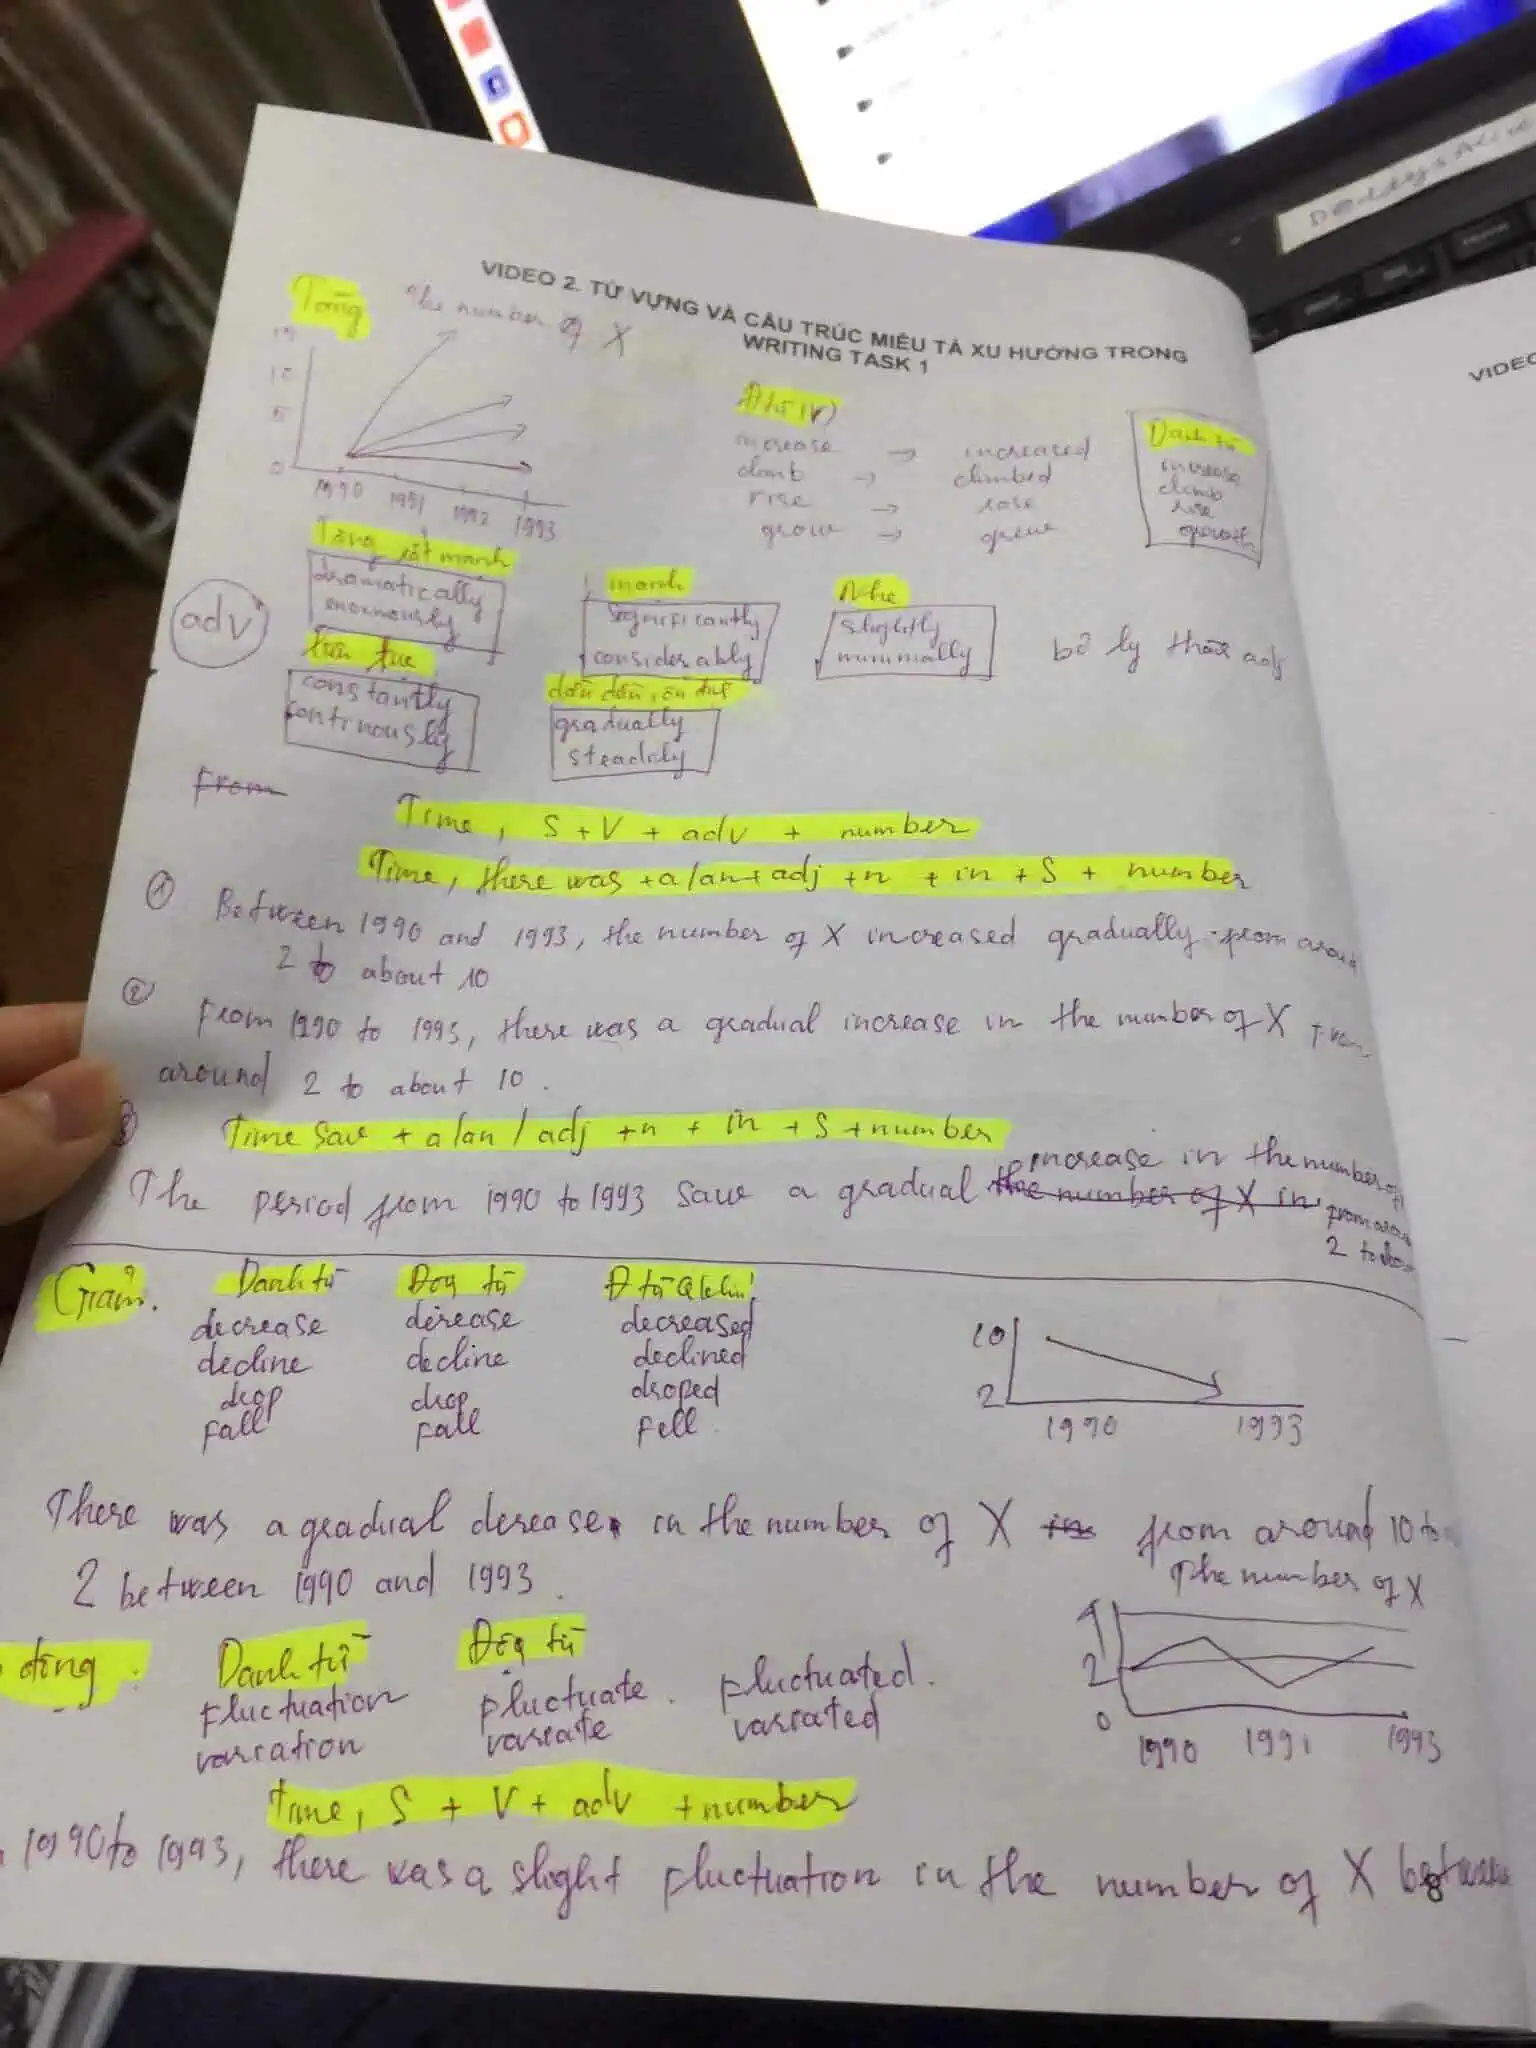 VIDEO 2. TỪ VỰNG VÀ CẤU TRÚC MIÊU TẢ XU HƯỚNG TRONG
WRITING TASK 1
VIDEO
Tăng
The number of X
10
5
0
1990 1991 1992 1993
Đ từ (V)
increase → increased
climb → climbed
rise → rose
grow → grew
Danh từ
increase
climb
rise
growth
adv
Tăng rất mạnh
dramatically
enormously
mạnh
significantly
considerably
Nhẹ
slightly
minimally
bỏ ly thành adj
liên tục
constantly
continously
dần dần, ổn định
gradually
steadily
From
Time, S + V + adv + number
Time, there was + a/an + adj + n + in + S + number
① Between 1990 and 1993, the number of X increased gradually from around
2 to about 10
② From 1990 to 1993, there was a gradual increase in the number of X from
around 2 to about 10.
3 Time saw + a/an / adj + n + in + S + number
The period from 1990 to 1993 saw a gradual the number of X in increase in the number of
from arou
2 to
Giảm.
Danh từ Độg từ Đ từ
decrease derease decreased
decline decline declined
drop drop droped
fall fall fell.
10
2
1990 1993
There was a gradual derease in the number of X in from around 10 to
2 between 1990 and 1993.
The number of X
4
2
0
1990 1991 1993
động:
Danh từ Độg từ
fluctuation fluctuate. fluctuated.
variation variate variated
Time, S + V + adv + number
1990 to 1993, there was a slight fluctuation in the number of X between
8